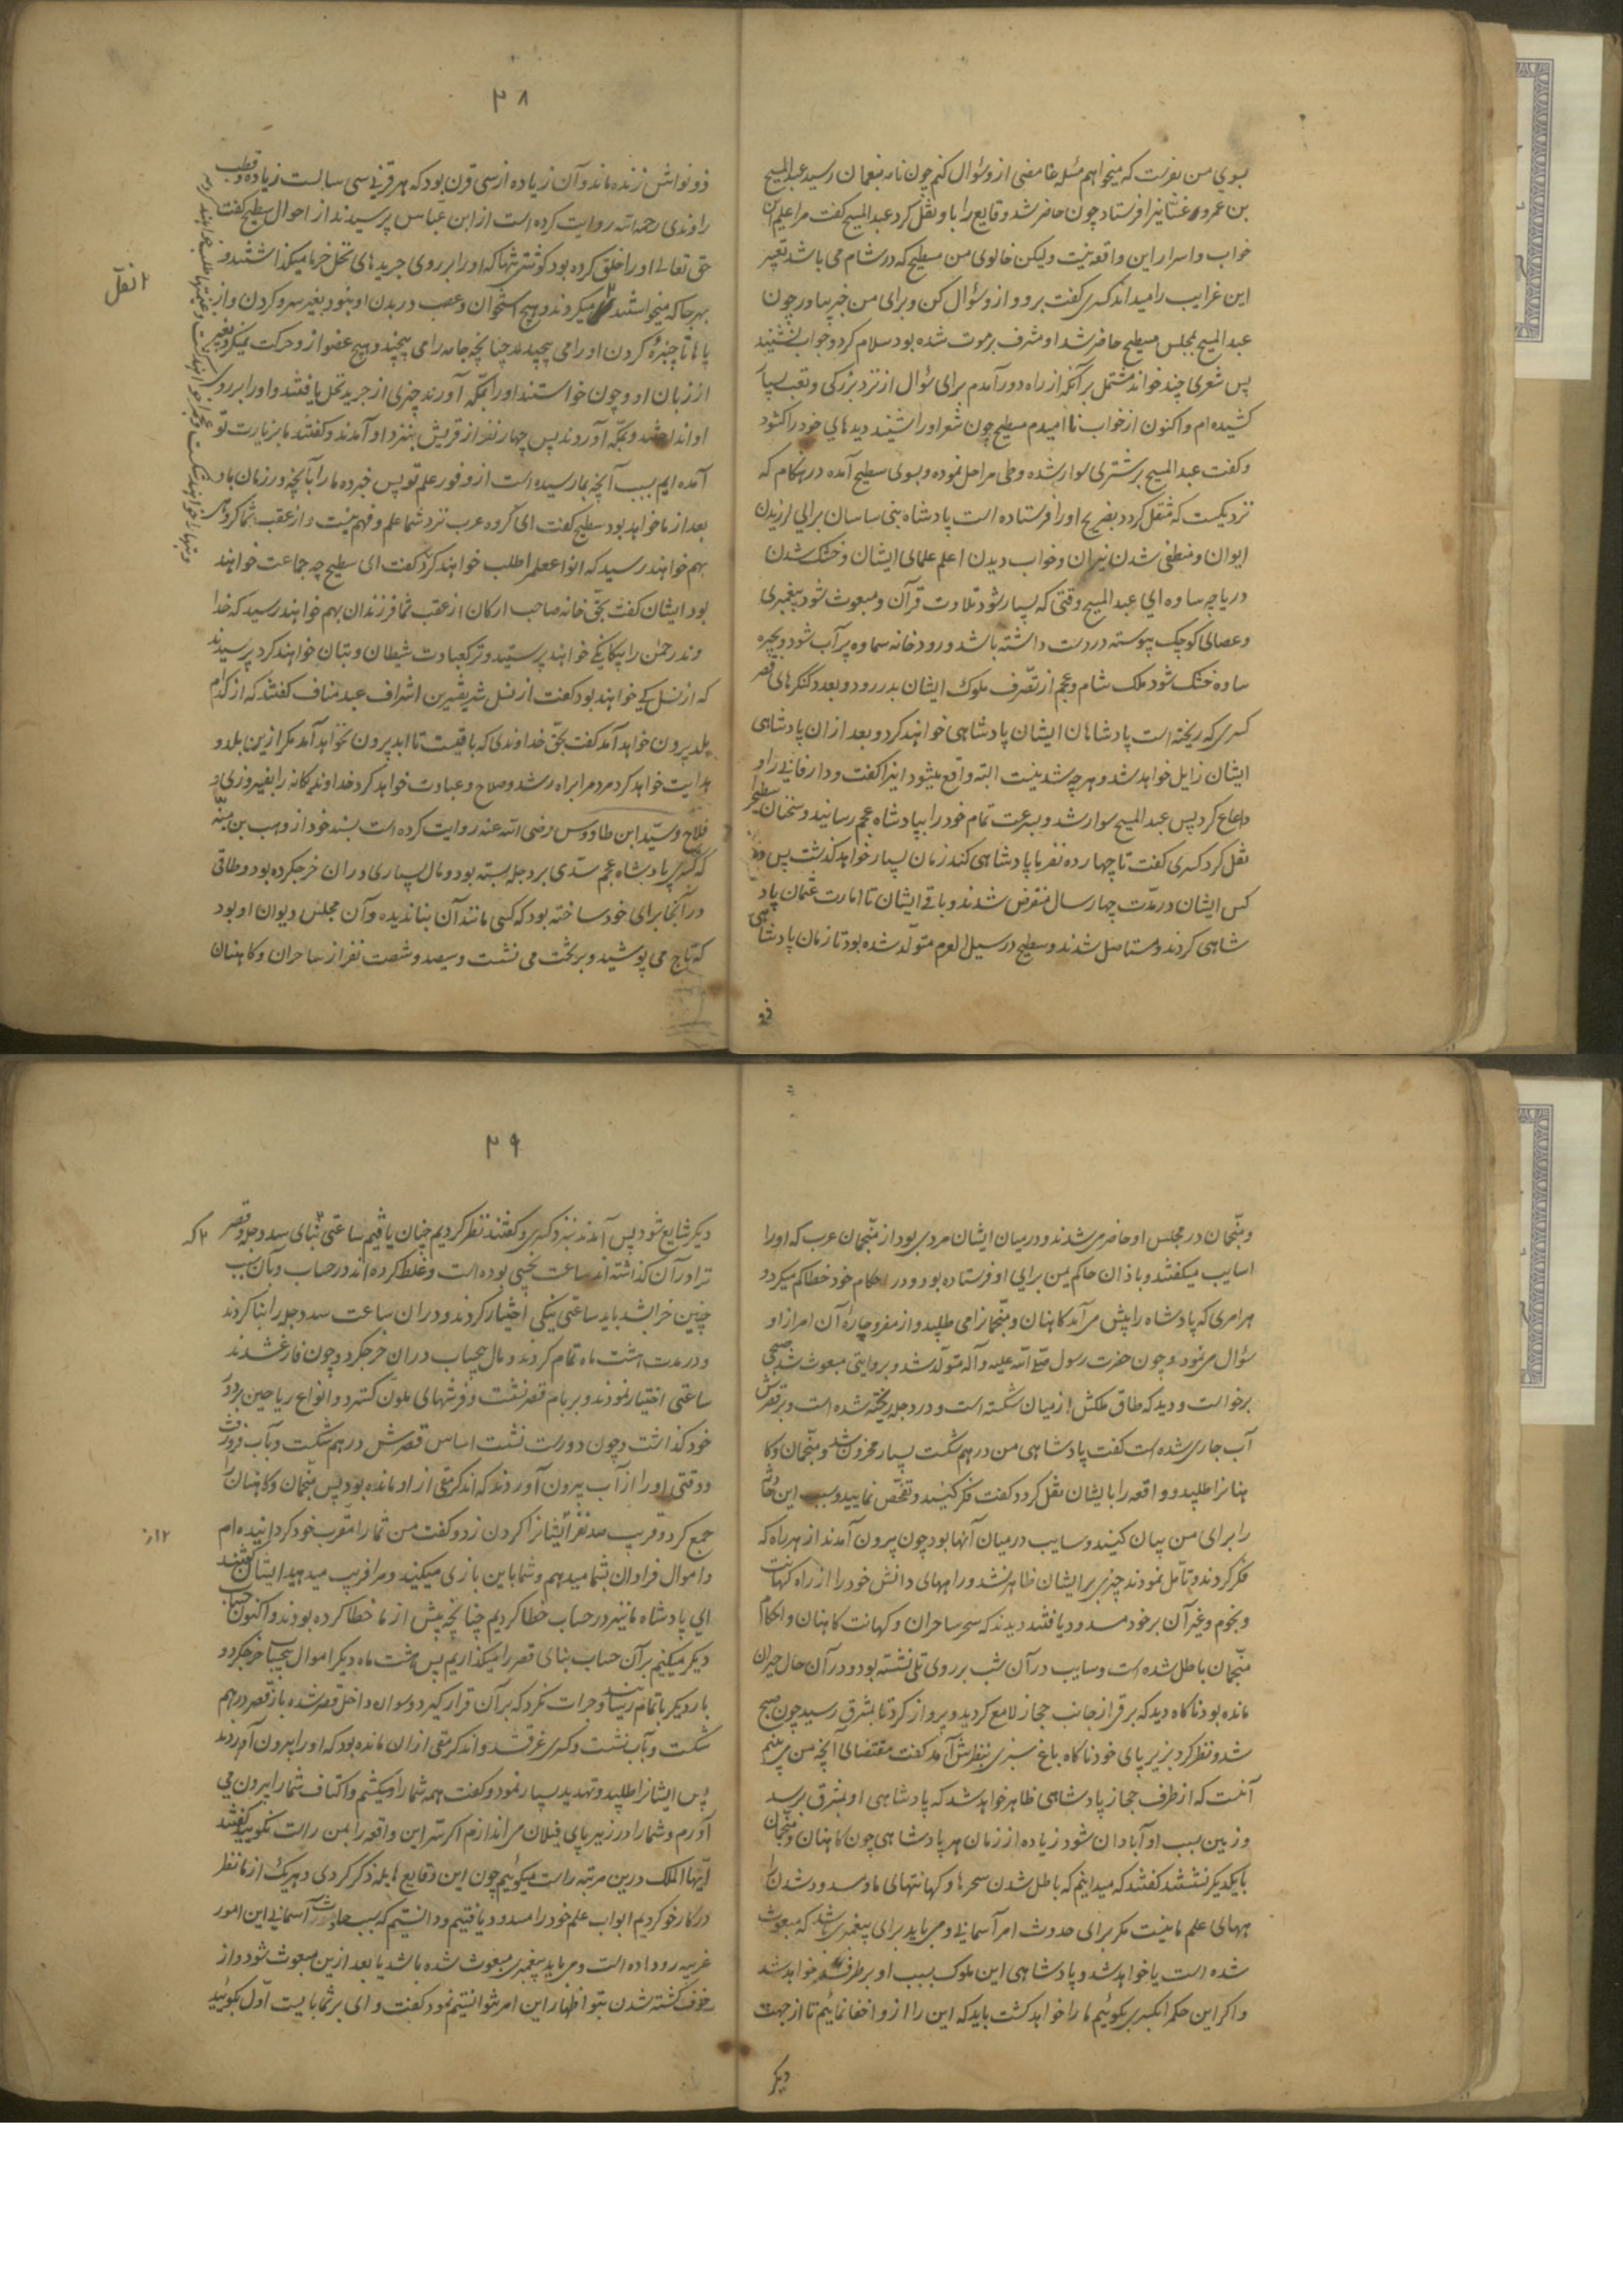 بسوی من بفرست که میخواهم مسئله غامضی از و سؤال کنم چون نامه بنعمان رسید عبدالمسیح
بن عمرو غسّانیرا فرستاد چون حاضر شد وقایع را باو نقل کرد عبدالمسیح گفت مرا علم این
خواب و اسرار این واقعه نیست ولیکن خالوی من سطیح که در شام می باشد تعبیر
این غرایب را میداند کسری گفت برو و از و سؤال کن و برای من خبر بیاور چون
عبدالمسیح بمجلس سطیح حاضر شد او مشرف بر موت شده بود سلام کرد و جواب نشنید
پس شعری چند خواند مشتمل بر آنکه از راه دور آمدم برای سؤال از نزد بزرگی و تعب بسیار
کشیده ام و اکنون از جواب ناامیدم سطیح چون شعر او را شنید دیدهای خود را کشود
و کفت عبدالمسیح بر شتری سوار شده و طی مراحل نموده و بسوی سطیح آمده در هنکام که
نزدیکست که منتقل کردد بضریح او را فرستاده است پادشاه بنی ساسان برای لرزیدن
ایوان و منطفی شدن نیران و خواب دیدن اعلم علمای ایشان و خشک شدن
دریاچه ساوه ای عبدالمسیح وقتی که بسیار شود تلاوت قرآن و مبعوث شود پیغمبری
و عصای کوچک پیوسته در دست داشته باشد و رودخانه سماوه پر آب شود و بحیره
ساوه خشک شود ملک شام و عجم از تصّرف ملوک ایشان بدر رود و بعدد کنکرهای قصر
کسری که ریخته است پادشاهان ایشان پادشاهی خواهند کرد و بعد از ان پادشاهی
ایشان زایل خواهد شد و هر چه شدنیست البته واقع میشود اینرا کفت و دار فانی را و
داع کرد پس عبدالمسیح سوار شد و بسرعت تمام خود را بپادشاه عجم رسانید و سخنان سطیح را
نقل کرد کسری کفت تا چهارده نفر ما پادشاهی کند زمان بسیار خواهد کذشت پس ده
کس ایشان در مدّت چهار سال منقرض شدند و باقی ایشان تا امارت عثمان پاد
شاهی کردند و مستاصل شدند و سطیح در سیل العرم متولّد شده بود تا زمان پادشاهی
ذو
۳۸
ذونواش زنده ماند و آن زیاده از سی قرن بود که هر قرنی سی سالست زیاده و قطب
راوندی رحمه الله روایت کرده است از ابن عبّاس پرسیدند از احوال سطیح کفت
حق تعالی او را خلق کرده بود کوشتی تنها که او را بر روی جریدهای نخل خرما میکذاشتند و
بهر جا که میخواستند میکردند و هیچ استخوان و عصب در بدن او نبود بغیر سر و کردن و از
۲ نقل
پاها تا چنبره کردن او را می پیچیدند چنانچه جامه را می پیچند و هیچ عضو از و حرکت نمیکرد بغیر
از زبان او و چون خواستند او را بمکّه آورند چیزی از جرید نخل بافتند و او را بر روی
او انداختند و بمکّه آوردند پس چهار نفر از قریش بنزد او آمدند و کفتند ما بزیارت تو
آمده ایم بسبب آنچه بما رسیده است از وفور علم تو پس خبر ده ما را بآنچه در زمان ما و
بعد از ما خواهد بود سطیح کفت ای کروه عرب نزد شما علم و فهم نیست و از عقب شما کروهی
بهم خواهند رسید که انواع علم را طلب خواهند کرد کفت ای سطیح چه جماعت خواهند
بود ایشان کفت بحقّ خانه صاحب ارکان از عقب شما فرزندان بهم خواهند رسید که خدا
وند رحمن را بیکانکی خواهند پرستید و ترک عبادت شیطان و بتان خواهند کرد پرسیدند
که از نسل کی خواهند بود کفت از نسل شریفترین اشراف عبد مناف کفتند که از کدام
بلد بیرون خواهد آمد کفت بحق خداوندی که باقیست تا ابد بیرون نخواهد آمد مکر ازین بلد و
هدایت خواهد کرد مردم را براه رشد و صلاح و عبادت خواهد کرد خداوند یکانه را بفیروزی و
فلاح و سیّد ابن طاووس رضی الله عنه روایت کرده است بسند خود از وهب بن منبّه
که کسری پادشاه عجم سدّی بر دجله بسته بود و مال بسیاری در ان خرج کرده بود و طاقی
در آنجا برای خود ساخته بود که کسی مانند آن بنا ندیده و آن مجلس دیوان او بود
که تاج می پوشید و بر تخت می نشست و سیصد و شصت نفر از ساحران و کاهنان
و منجّمان در مجلس او حاضر می شدند و در میان ایشان مردی بود از منجّمان عرب که او را
سایب میکفتند و باذان حاکم یمن برای او فرستاده بود و در احکام خود خطا کم میکرد و
هر امری که پادشاه را پیش می آمد کاهنان و منجّمانرا می طلبید و از مفرّ و چارهٔ آن امر از او
سؤال می نمود و چون حضرت رسول صلی الله علیه و آله متولّد شد و بروایتی مبعوث شد صبحی
برخواست و دید که طاق ملکش از میان شکسته است و در دجله ریخته شده است و بر قصرش
آب جاری شده است کفت پادشاهی من درهم شکست بسیار محزون شد و منجّمان و کا
هنانرا طلبید و واقعه را بایشان نقل کرد و کفت فکر کنید و تفحّص نمایید و سبب این حادثه
را برای من بیان کنید و سایب در میان آنها بود چون بیرون آمدند از هر راه که
فکر کردند و تأمّل نمودند چیزی بر ایشان ظاهر نشد و راههای دانش خود را از راه کهانت
و نجوم و غیر آن بر خود مسدود یافتند دیدند که سحر ساحران و کهانت کاهنان و احکام
منجّمان باطل شده است و سایب در آن شب بر روی تلی نشسته بود و در آن حال حیران
مانده بود ناکاه دید که برقی از جانب حجاز لامع کردید و پرواز کرد تا بمشرق رسید چون صبح
شد و نظر کرد بزیر پای خود ناکاه باغ سبزی بنظرش آمد کفت مقتضای آنچه من می بینم
آنست که از طرف حجاز پادشاهی ظاهر خواهد شد که پادشاهی او بمشرق برسد
و زمین بسبب او آبادان شود زیاده از زمان هر پادشاهی چون کاهنان و منجّمان
با یکدیکر نشستند کفتند که میدانیم که باطل شدن سحرها و کهانتهای ما و مسدود شدن را
ههای علم ما نیست مکر برای حدوث امر آسمانی و می باید برای پیغمبری باشد که مبعوث
شده است یا خواهد شد و پادشاهی این ملوک بسبب او برطرف خواهد شد
و اکر این حکم را بکسری بکوئیم ما را خواهد کشت باید که این را از و اخفا نمائیم تا از جهت
دیکر
۳۹
دیکر شایع شود پس آمدند بنزد کسری و کفتند نظر کردیم چنان یافتیم ساعتی بنای سد دجله و قصر
۲ که
ترا در آن کذاشته اند ساعت نحسی بوده است و غلط کرده اند در حساب و بآن سبب
چنین خراب شد باید ساعتی نیکی اختیار کردند و در ان ساعت سد دجله را بنا کردند
و در مدت هشت ماه تمام کردند و مال بیحساب در ان خرج کرد و چون فارغ شدند
ساعتی اختیار نمودند و بر بام قصر نشست و فرشهای ملون کسترد و انواع ریاحین بر دور
خود کذاشت و چون درست نشست اساس قصرش درهم شکست و بآب فرو رفت
و وقتی او را از آب بیرون آوردند که اندک رمقی از او مانده بود پس منجّمان و کاهنان را
جمع کرد و قریب صد نفر ایشانرا کردن زد و کفت من شما را مقرّب خود کردانیده ام
و اموال فراوان بشما میدهم و شما با من بازی میکنید و مرا فریب میدهید ایشان کفتند
ای پادشاه ما نیز در حساب خطا کردیم چنانچه پیش از ما خطا کرده بودند و اکنون حساب
دیکر میکنیم بر آن حساب بنای قصر را میکذاریم پس هشت ماه دیکر اموال بیحساب خرج کرد و
بار دیکر باتمام رسانید و جرات نکرد که بر آن قرار کیرد و سواره داخل قصر شد باز قصر درهم
شکست و بآب نشست و کسری غرق شد و اندک رمقی از ان مانده بود که او را بیرون آوردند
پس ایشانرا طلبید و تهدید بسیار نمود و کفت همه شما را میکشم و اکتاف شما را بیرون می
آورم و شما را در زیر پای فیلان می اندازم اکر سرّ این واقعه را بمن راست نکویید کفتند
ایّها الملک درین مرتبه راست میکوئیم چون این وقایع بما ذکر کردی و هر یک از ما نظر
در کار خود کردیم ابواب علم خود را مسدود یافتیم و دانستیم که بسبب حادثه آسمانی این امور
غریبه رو داده است و می باید پیغمبری مبعوث شده باشد یا بعد ازین مبعوث شود و از
خوف کشته شدن بتو اظهار این امر نتوانستیم نمود کفت وای بر شما بایست اوّل بکویید